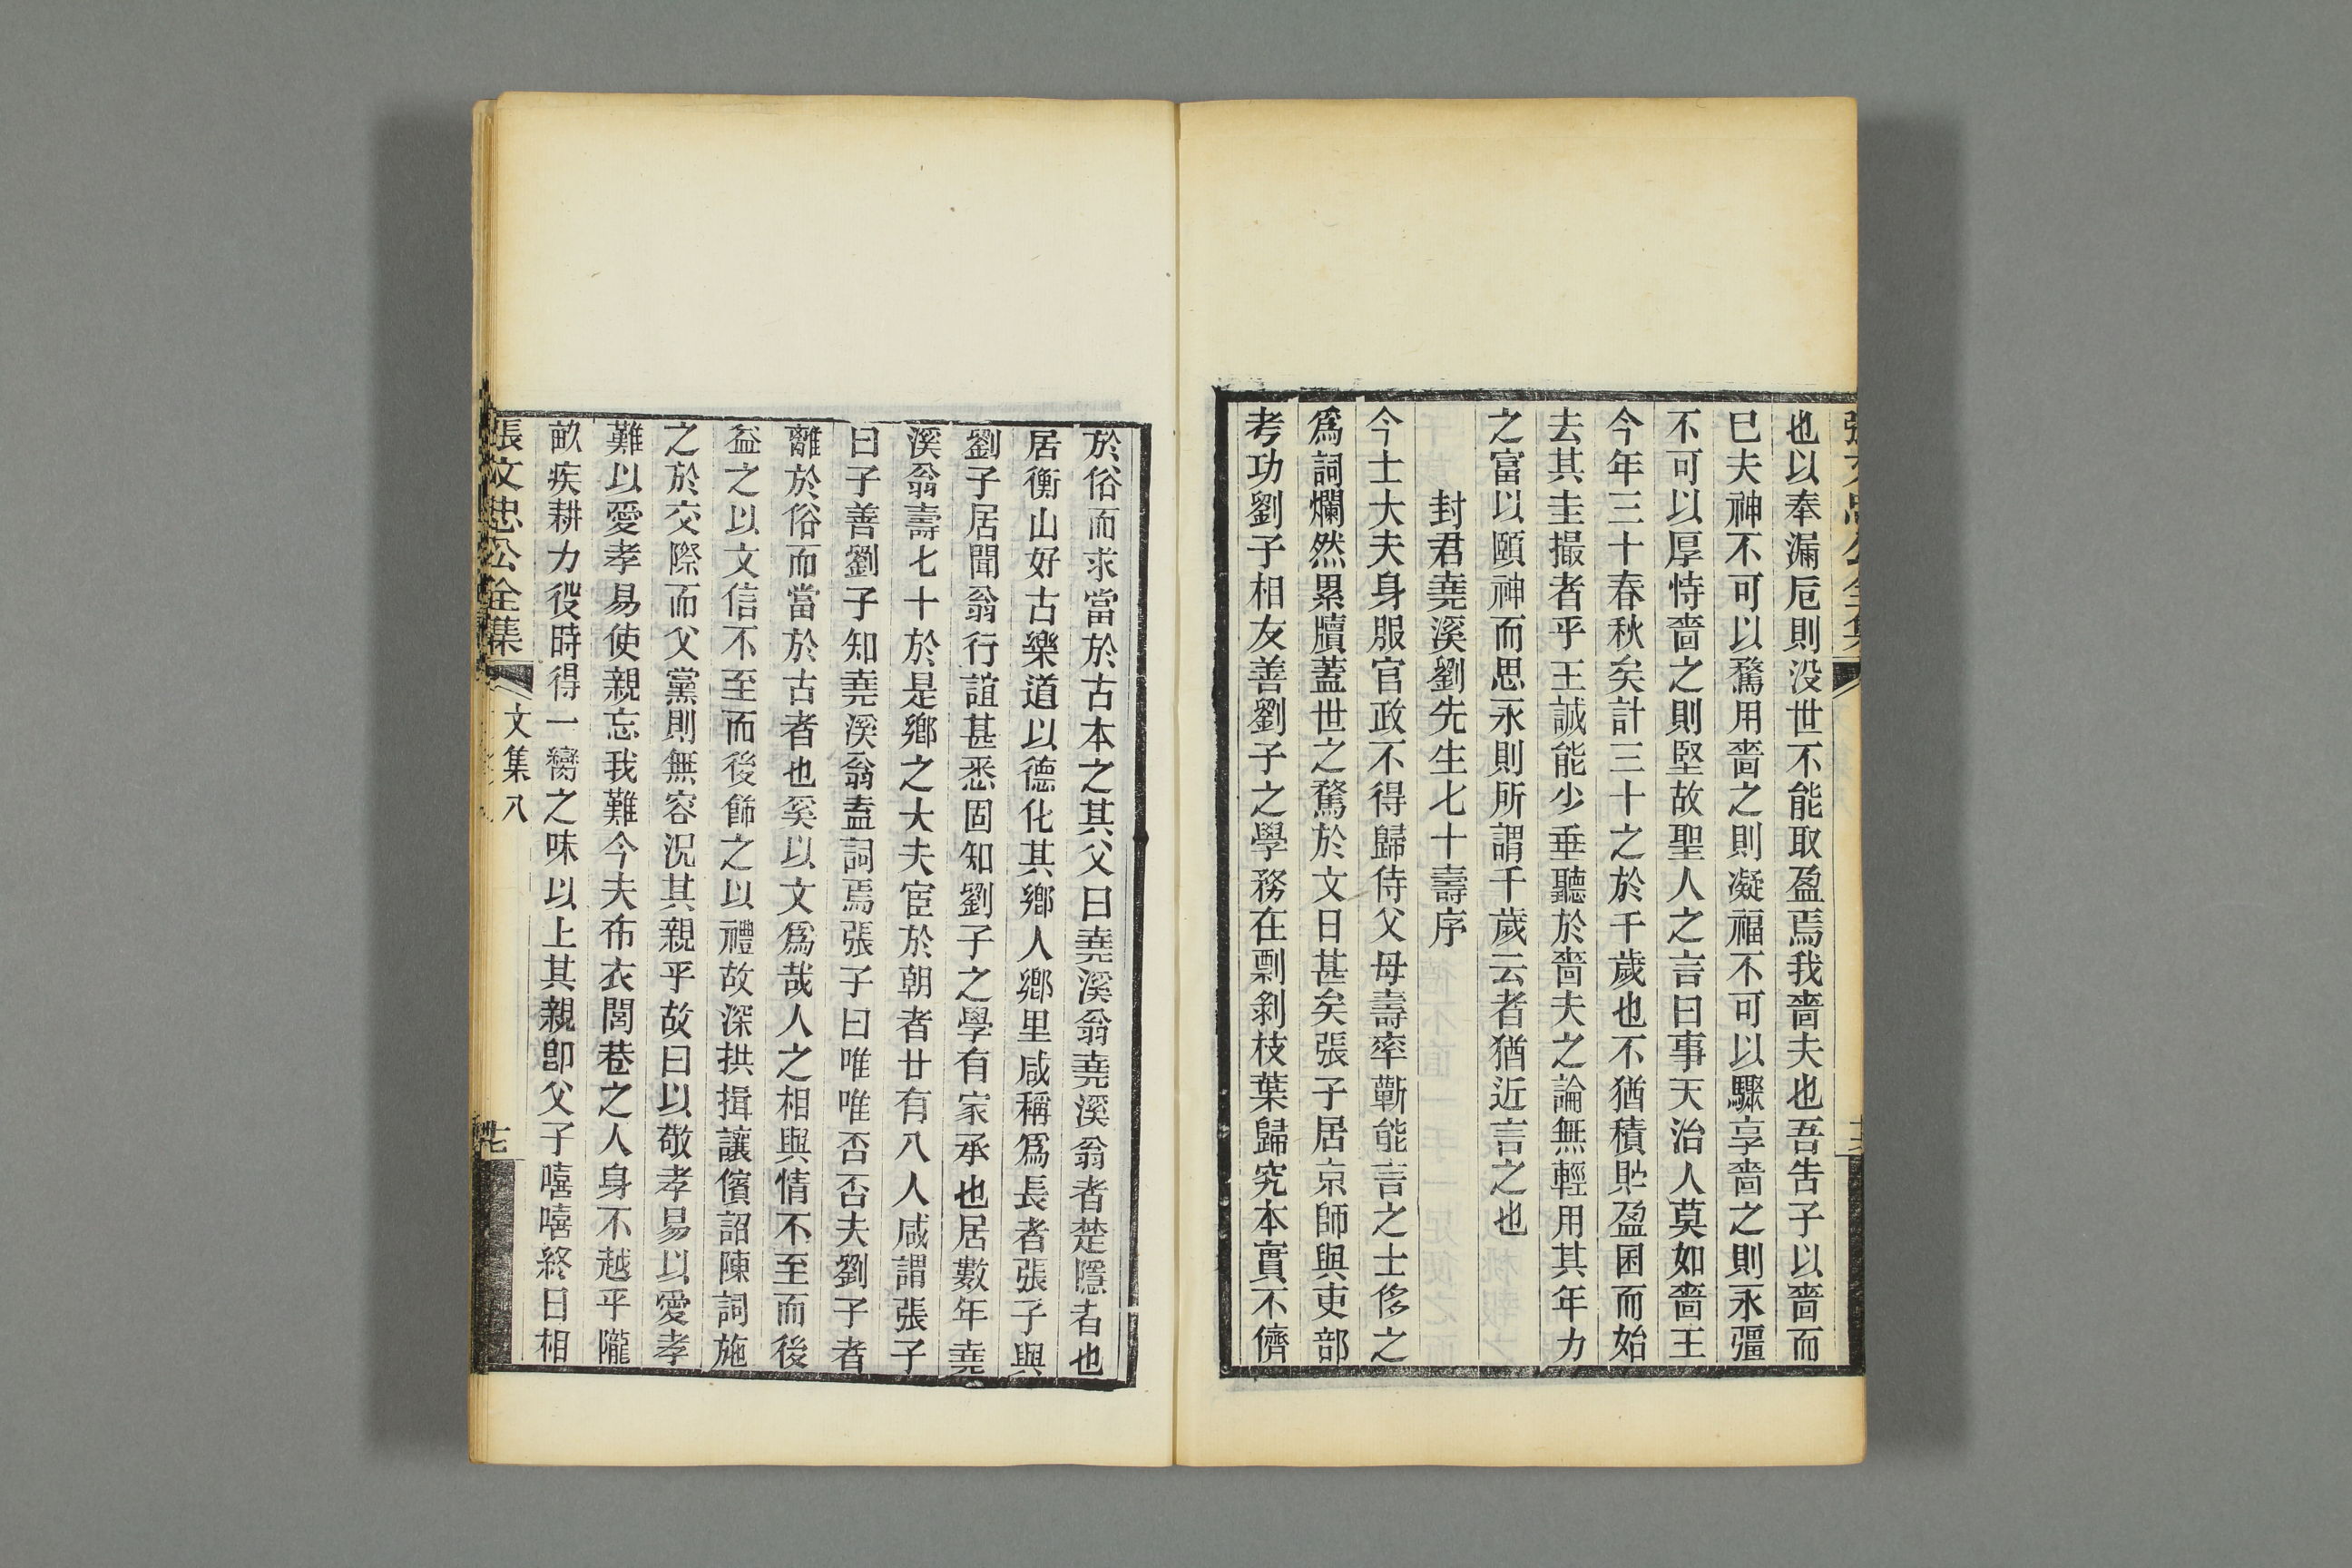 也以奉漏卮則没世不能取盈焉我嗇夫也吾告子以嗇而
巳夫神不可以騖用嗇之則凝福不可以驟享嗇之則永彊
不可以厚恃嗇之則堅故聖人之言曰事天治人莫如嗇王
今年三十春秋矣計三十之於千歲也不猶積貯盈囷而始
去其圭撮者乎王誠能少垂聽於嗇夫之論無輕用其年力
之富以頤神而思永則所謂千歲云者猶近言之也
封君堯溪劉先生七十壽序
今士大夫身服官政不得歸侍父母壽率蘄能言之士侈之
爲詞爛然累牘蓋世之騖於文日甚矣張子居京師與吏部
考功劉子相友善劉子之學務在剽剝枝葉歸究本實不儕
於俗而求當於古本之其父曰堯溪翁堯溪翁者楚隱者也
居衡山好古樂道以德化其鄉人鄉里咸稱爲長者張子與
劉子居聞翁行誼甚悉固知劉子之學有家承也居數年堯
溪翁壽七十於是鄉之大夫宦於朝者廿有八人咸謂張子
曰子善劉子知堯溪翁盍詞焉張子曰唯唯否否夫劉子者
離於俗而當於古者也奚以文爲哉人之相與情不至而後
益之以文信不至而後飾之以禮故深拱揖讓儐詔陳詞施
之於交際而父黨則無容況其親乎故曰以敬孝易以愛孝
難以愛孝易使親忘我難今夫布衣閭巷之人身不越乎隴
畝疾耕力役時得一臠之味以上其親卽父子嘻嘻終日相
張文忠公全集
文集八
七